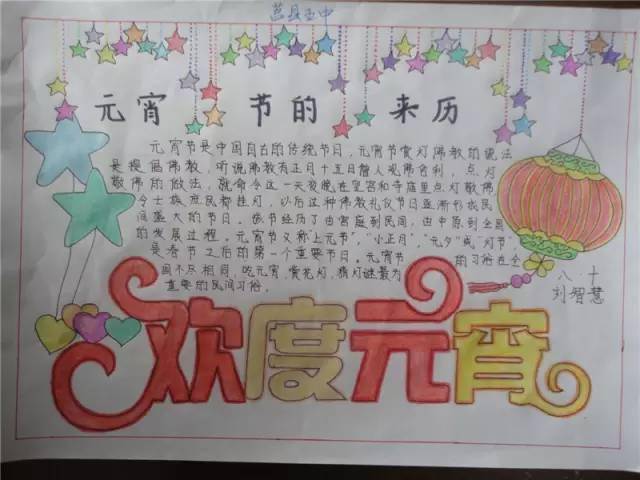 莒县五中
元宵节的来历
元宵节是中国自古的传统节日,元宵节赏灯佛教的说法
是提倡佛教,听说佛教有正月十五日僧人观佛舍利,点灯
敬佛的做法,就命令这一天夜晚在皇宫和寺庙里点灯敬佛
令士族庶民都挂灯,以后这种佛教礼仪节日逐渐形成民
间盛大的节日。该节经历了由宫庭到民间,由中原到全国
的发展过程。元宵节又称"上元节","小正月","元夕"或"灯节",
是春节之后的第一个重要节日。元宵节的习俗在全
国不尽相同,吃元宵,赏花灯,猜灯谜最为
重要的民间习俗。
八、十
刘智慧
欢度元宵